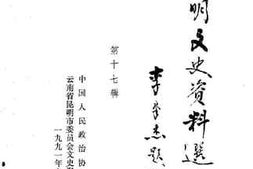 明文史资料選
李家杰题
第十七辑
中国人民政治协
云南省昆明市委员会文史
一九九一年